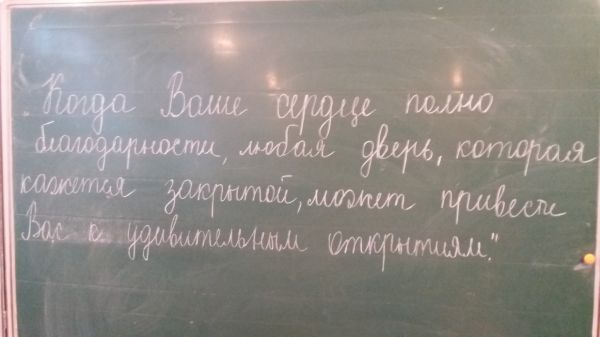 Когда Ваше сердце полно
благодарности, любая дверь, которая
кажется закрытой, может привести
Вас к удивительным открытиям."